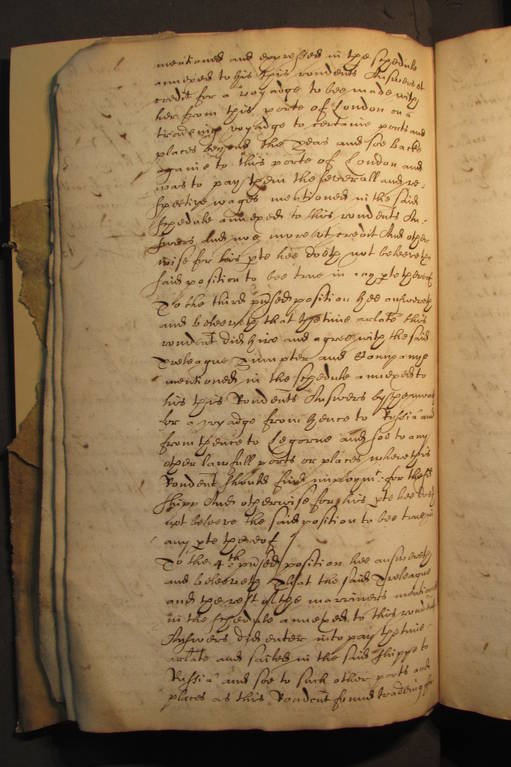 mentioned and expressed in the schedule
annexed to his this rondents Answers et
credit for a voyadge to bee made with
her from this porte of London on a
tradeing voyadge to certaine ports and
places beyond the seas and soe backe
againe to this porte of London and
was to pay them the severall and re-
spective wages mentioned in the said
schedule annexed to this rondents An-
swers And noe more et credit And other-
wise for his pte hee doeth not beleeve the
said position to bee true in any pte thereof
To the third position hee answereth
and beleeveth that the time arlate this
rondent did hire and agree with the said
Treleague and Company
mentioned in the schedule annexed to
his this Rondents Answers
for a voyadge from hence to Russia and
from thence to Legorne and soe to any
other lawfull ports or places where this
Rondent should finde imploymt for the sd
shipp And otherwise for his pte hee doeth
not beleeve the said position to bee true in
any pte thereof
To the 4th position hee answereth
and beleeveth That the said Treleague
and the rest of the marriners mentioned
in the schedule annexed to this rondents
Answers did enter into pay the time
arlate and sailed in the said shippe to
Russia and soe to such other ports and
places as this Rondent found tradeing for